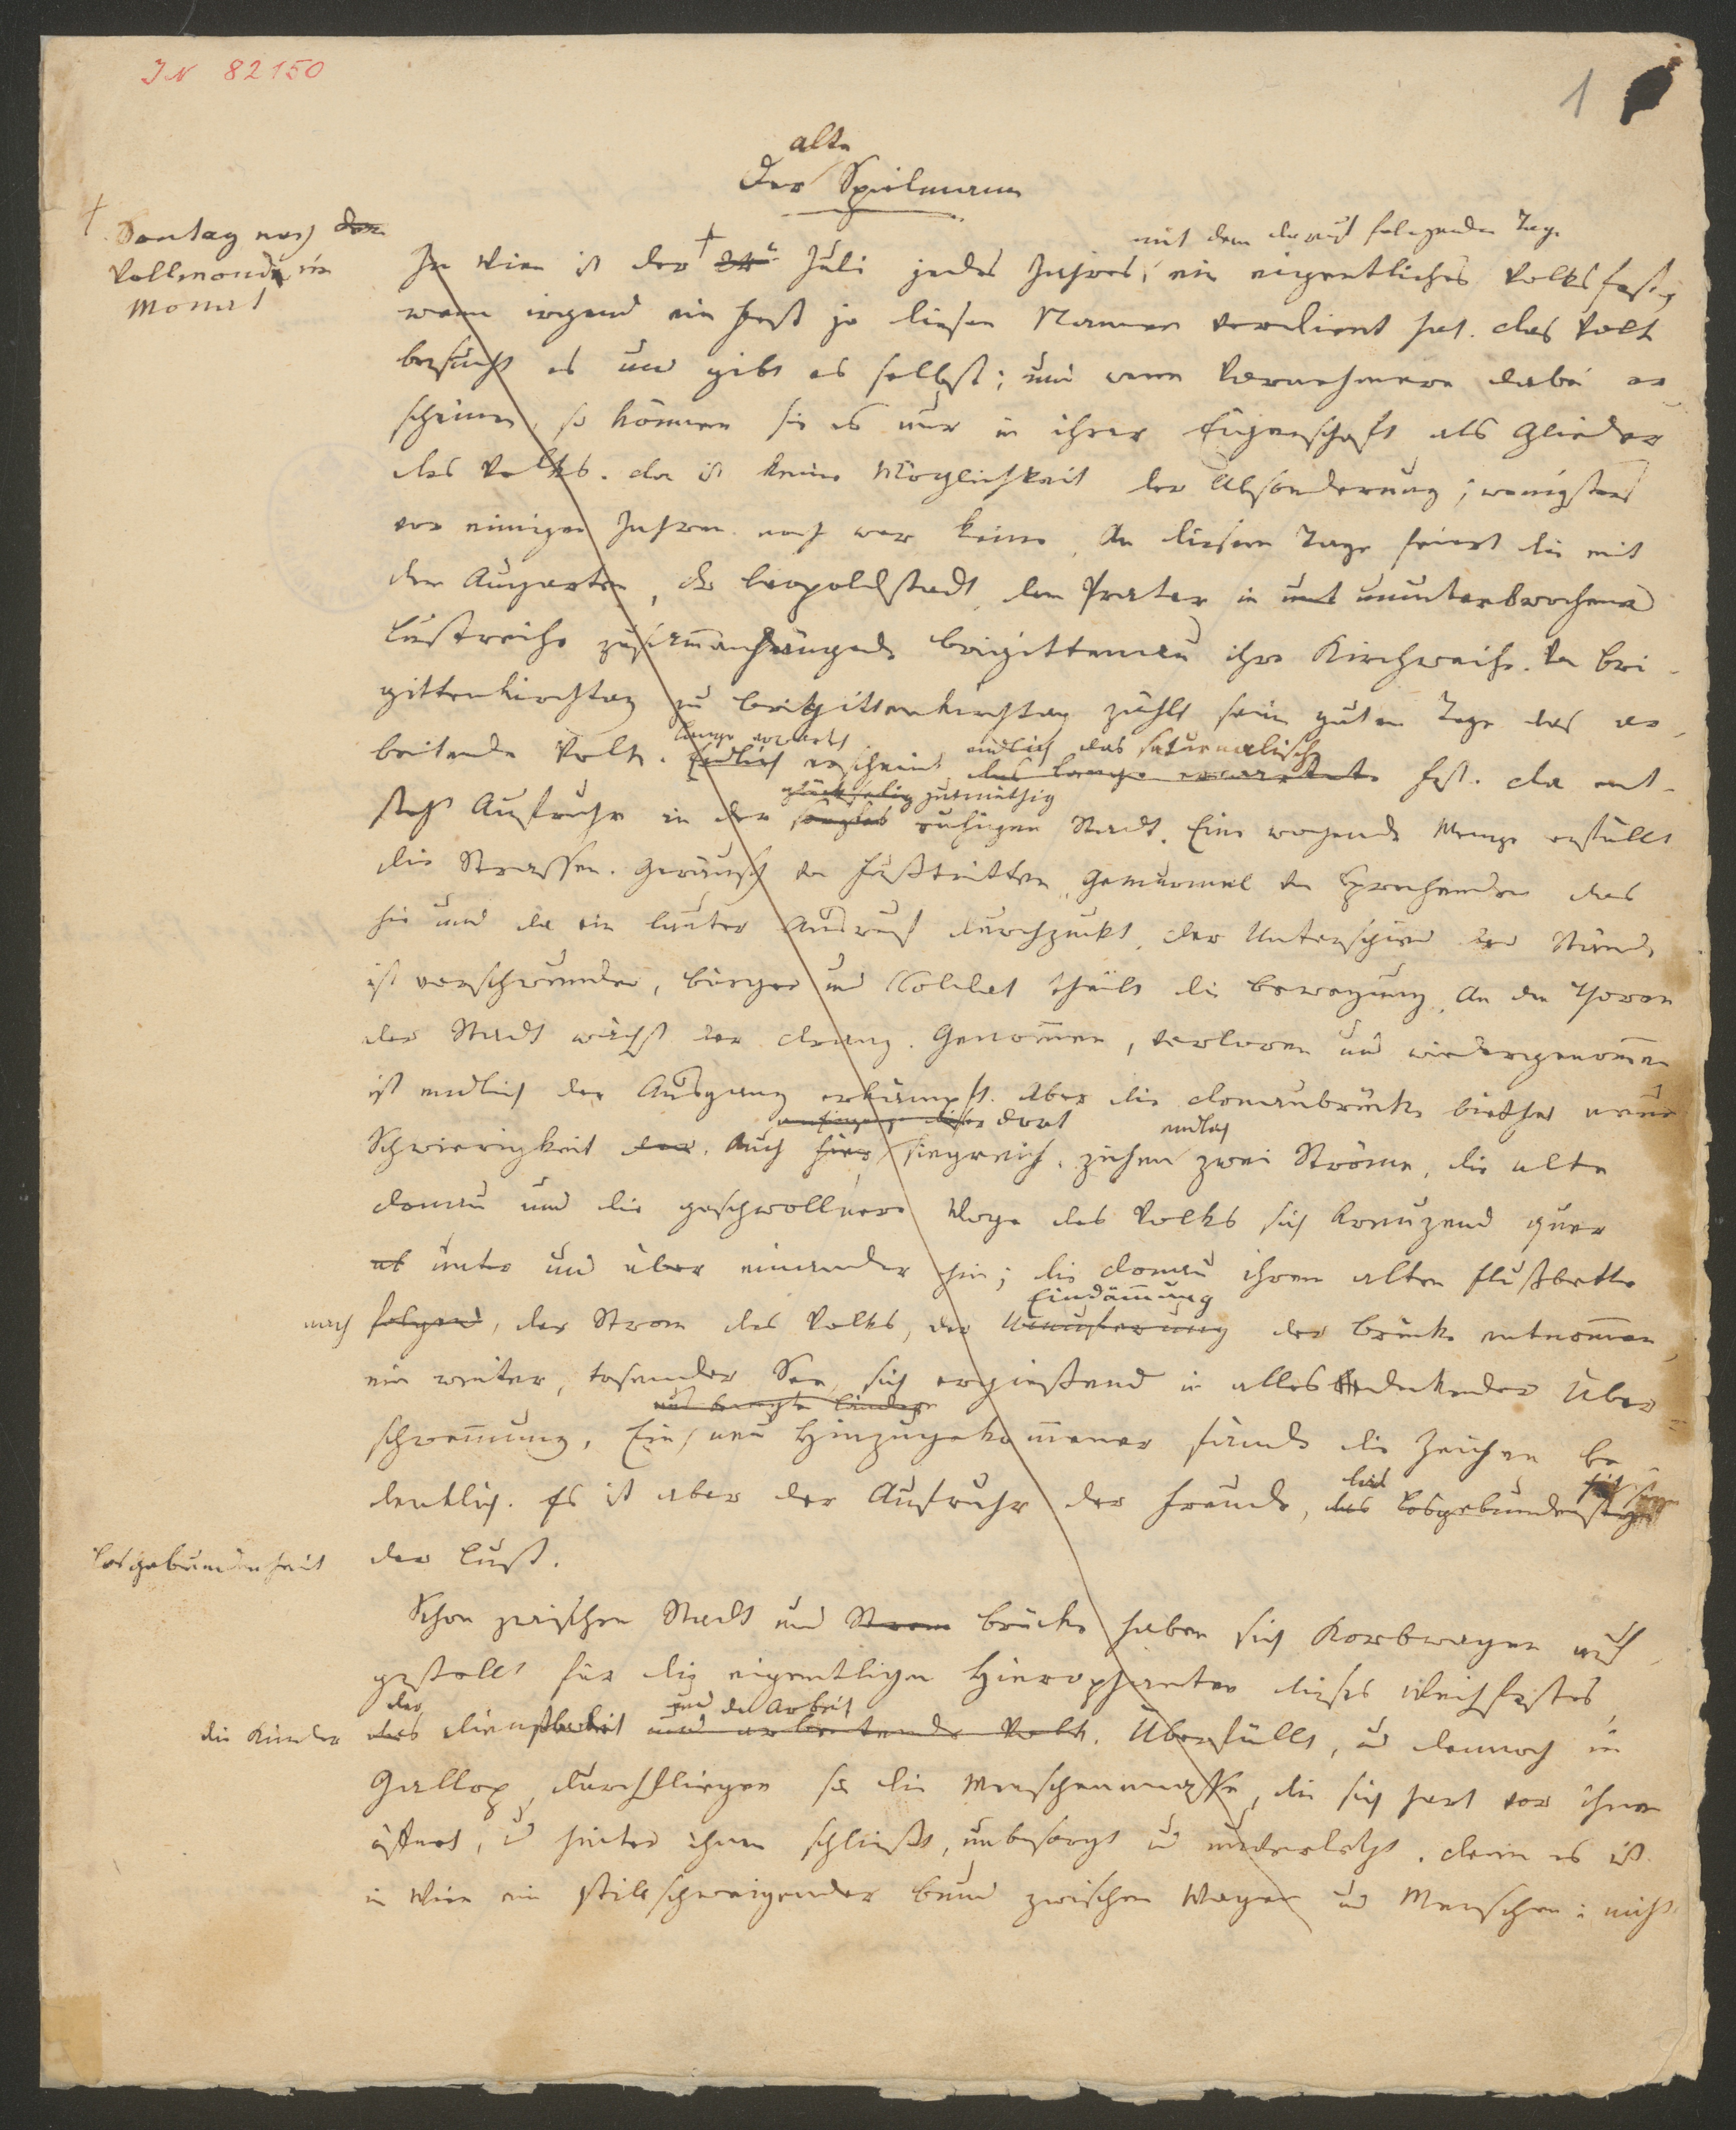 IN 82150
1
alte
Der Spielmann
† Sontag nach dem
Vollmonde im
Monat
mit dem darauf folgenden Tage
In Wien ist der † Juli jedes Jahres, ein eigentliches Volksfest,
wenn irgend ein Fest je diesen Namen verdient hat. Das Volk
besucht es und gibt es selbst; und wenn Vornehmere dabei er
scheinen, so können sie es nur in ihrer Eigenschaft als Glieder
des Volks. Da ist keine Möglichkeit der Absonderung; wenigstens
vor einigen Jahren noch war keine. An diesem Tage feiert die mit
dem Augarten, der Leopoldstadt, dem Prater in unt ununterbrochener
Lustreihe zusammenhängende Brigittenau ihre Kirchweihe. Von Bri-
gittenkirchtag zu Brigittenkirchtag zählt seine guten Tage das ar-
lange erwartet endlich das saturnalische
beitende Volk. Endlich erscheint das lange erwartete Fest. Da ent-
gutmüthig
steht Aufruhr in der ruhigen Stadt. Eine wogende Menge erfüllt
die Strassen. Geräusch von Fußtritten, Gemurmel von Sprechenden das
hie und da ein lauter Ausruf durchzuckt. Der Unterschied der Stände
ist verschwunden, Bürger und Soldat theilt die Bewegung. An den Thoren
der Stadt wächst der Drang. Genommen, verloren und wiedergenommen
ist endlich der Ausgang erkämpft. Aber die Donaubrücke biethet neue
dort endlich
Schwierigkeit dar. Auch hier siegreich, ziehen zwei Ströme, die alte
Donau und die geschwollnere Woge des Volks sich kreuzend quer
ab unter und über einander hin; die Donau ihrem alten Flußbette
Eindämmung
nach folgend, der Strom des Volks, der der Brücke entnommen,
ein weiter, tosender See, sich ergießend in alles deckender Über=
schwemmung. Ein neu Hinzugekommener fände die Zeichen be
die
denklich. Es ist aber der Aufruhr der Freude, das
Losgebundenheit der Lust.
Schon zwischen Stadt und Strom Brücke haben sich Korbwagen auf
gestellt für die eigentlichen Hierophanten dieses Weihfestes,
der und der Arbeit
die Kinder des Dienstbarkeit und arbeitende Volk. Überfüllt, und dennoch im
Gallop durchfliegen sie die Menschenmasse, die sich hart vor ihnen
öffnet, und hinter ihnen schließt, unbesorgt und unverletzt. Denn es ist
in Wien ein stillschweigender Bund zwischen Wagen und Menschen: nicht